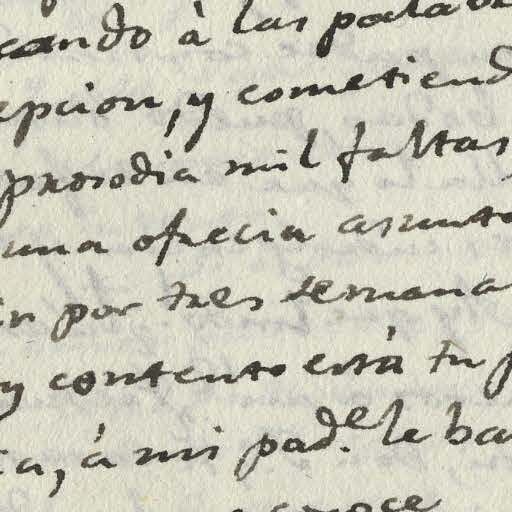 cando à las palab
epcion, y cometiend
prosodia mil faltas,
una ofrecia asunto
in por tres semana
y contento está tu p
ca, á mi pad.e le ba
noce